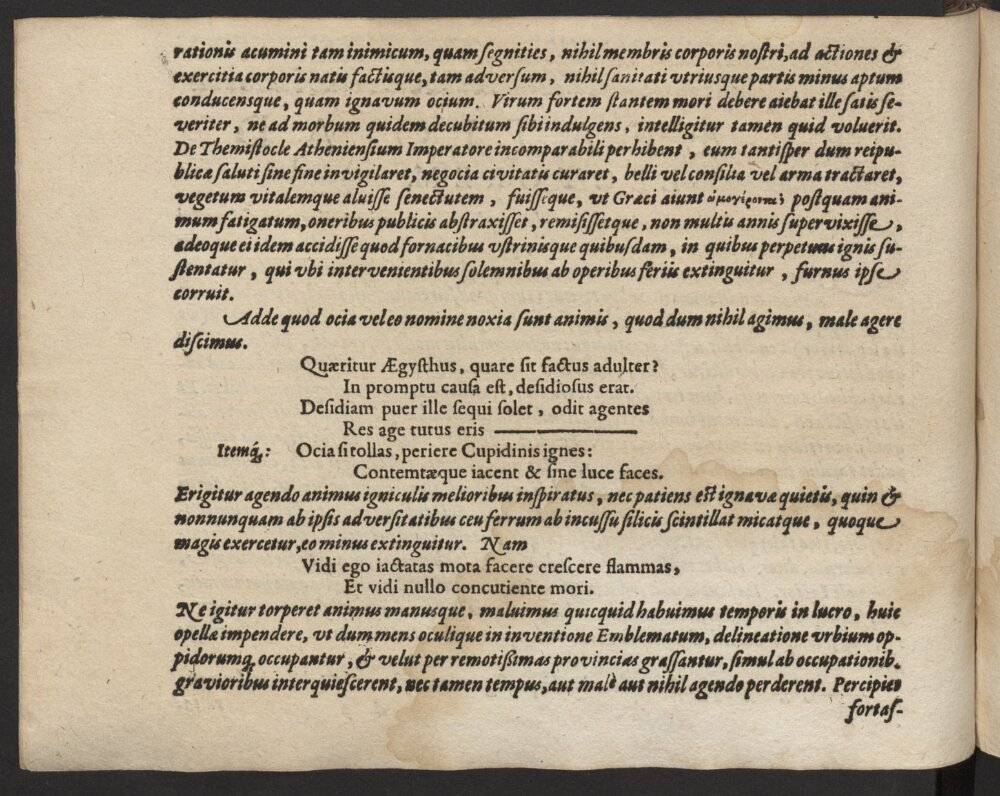 rationis acumini tam inimicum, quam segnities, nihil membris corporis nostri, ad actiones &
exercitia corporis natis factisque, tam adversum, nihil sanitati vtriusque partis minus aptum
conducensque, quam ignavum ocium. Virum fortem stantem mori debere aiebat ille satis se-
veriter, ne ad morbum quidem decubitum sibi indulgens, intelligitur tamen quid voluerit.
De Themistocle Atheniensium Imperatore incomparabili perhibent, eum tantisper dum reipu-
blicæ saluti sine fine invigilaret, negocia civitatis curaret, belli vel consilia vel arma tractaret,
vegetum vitalemque aluisse senectutem, fuisseque, vt Græci aiunt postquam ani-
mum fatigatum, oneribus publicis abstraxisset, remisissetque, non multis annis supervixisse,
adeoque ei idem accidisse quod fornacibus vstrinisque quibusdam, in quibus perpetuus ignis su-
stentatur, qui vbi intervenientibus solemnibus ab operibus feriis extinguitur, furnus ipse
corruit.
Adde quod ocia vel eo nomine noxia sunt animis, quod dum nihil agimus, male agere
discimus.
Quæritur Ægysthus, quare sit factus adulter?
In promptu causa est, desidiosus erat.
Desidiam puer ille sequi solet, odit agentes
Res age tutus eris ———
Itemq́;: Ocia si tollas, periere Cupidinis ignes:
Contemtæque iacent & sine luce faces.
Erigitur agendo animus igniculis melioribus inspiratus, nec patiens est ignavæ quietis, quin &
nonnunquam ab ipsis adversitatibus ceu ferrum ab incussu silicis scintillat micatque, quoque
magis exercetur, eo minus extinguitur. Nam
Vidi ego iactatas mota facere crescere flammas,
Et vidi nullo concutiente mori.
Ne igitur torperet animus manusque, maluimus quicquid habuimus temporis in lucro, huic
opellæ impendere, vt dum mens oculique in inventione Emblematum, delineatione vrbium op-
pidorumq́; occupantur, & velut per remotißimas provincias grassantur, simul ab occupationib.
gravioribus interquiescerent, nec tamen tempus, aut malè aut nihil agendo perderent. Percipies
fortas-